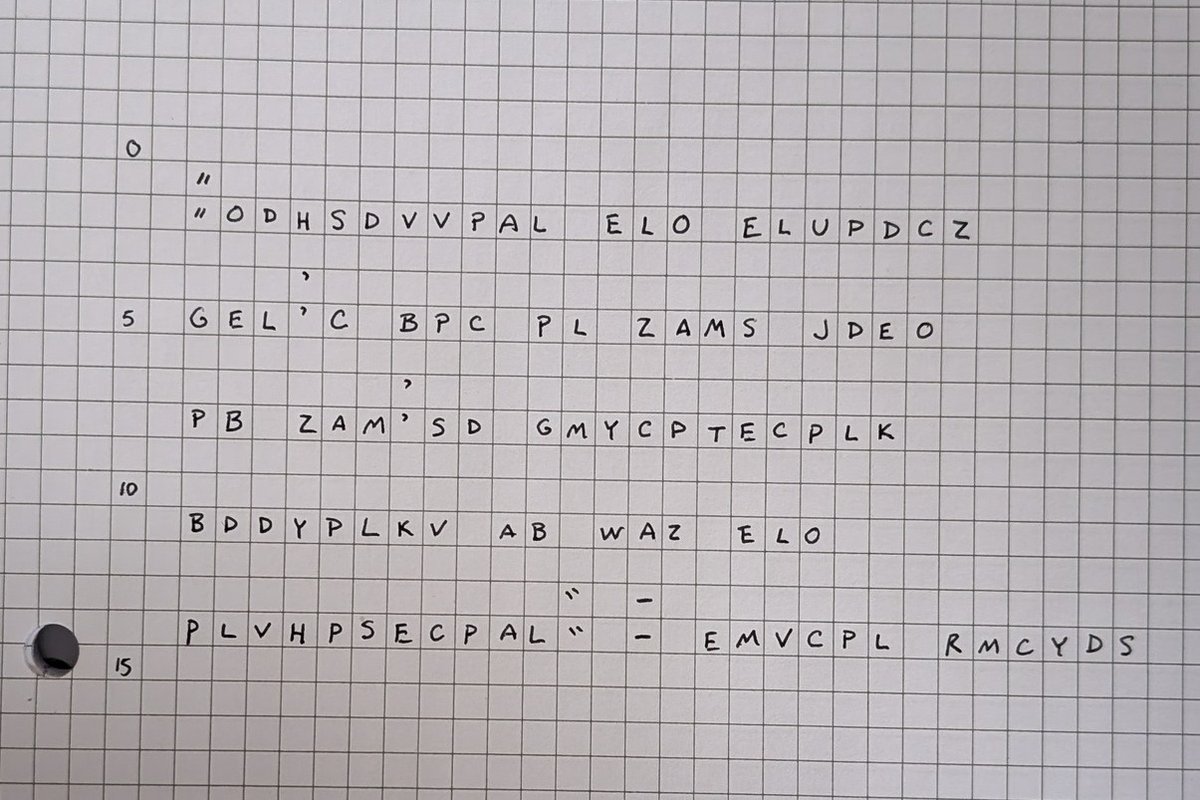 0
"
"ODHSDVVPAL ELO ELUPDCZ
’
5 GEL’C BPC PL ZAMS JDEO
’
PB ZAM’SD GMYCPTECPLK
10
BDDYPLKV AB WAZ ELO
“ –
PLVHPSECPAL“ – EMVCPL RMCYDS
15